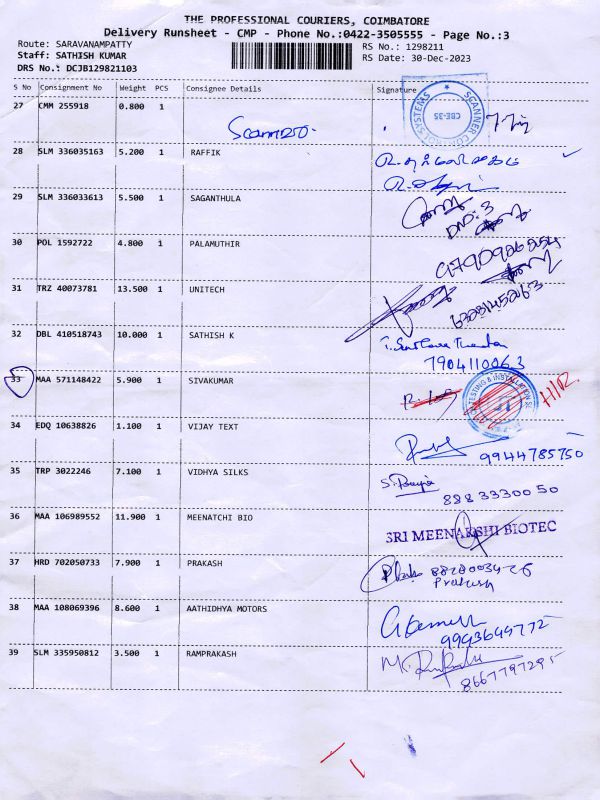 THE PROFESSIONAL COURIERS, COIMBATORE
Delivery Runsheet - CMP - Phone No.:0422-3505555 - Page No.:3
Route: SARAVANAMPATTY RS No.: 1298211
Staff: SATHISH KUMAR RS Date: 30-Dec-2023
DRS No.: DCJB129821103
S No Consignment No Weight PCS Consignee Details Signature
27 CMM 255918 0.800 1
SCANNER CONTROL SYSTEMS
CBE-35
28 SLM 336035163 5.200 1 RAFFIK
29 SLM 336033613 5.500 1 SAGANTHULA
30 POL 1592722 4.800 1 PALAMUTHIR
9790926254
31 TRZ 40073781 13.500 1 UNITECH
32 DBL 410518743 10.000 1 SATHISH K
7904110063
33 MAA 571148422 5.900 1 SIVAKUMAR
TESTING & INSTALLATION
34 EDQ 10638826 1.100 1 VIJAY TEXT
9944785750
35 TRP 3022246 7.100 1 VIDHYA SILKS
888 3330050
36 MAA 106989552 11.900 1 MEENATCHI BIO
SRI MEENAKSHI BIOTEC
37 HRD 702050733 7.900 1 PRAKASH
Prakash
38 MAA 108069396 8.600 1 AATHIDHYA MOTORS
39 SLM 335950812 3.500 1 RAMPRAKASH
8667797295